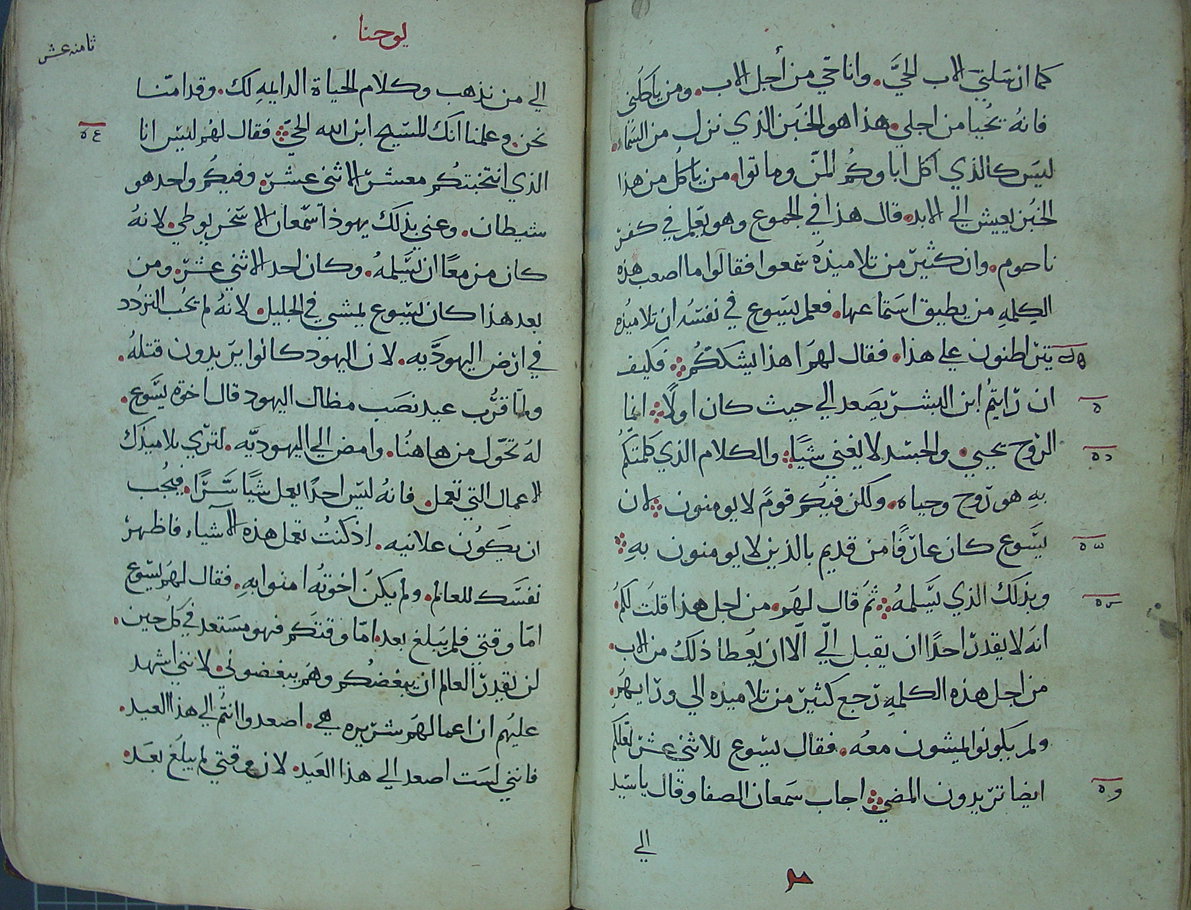 كما ارسلني الاب الحيَّ. وانا حي من أجل الاب. ومن ياكلني
فانهُ يحُيا من اجلي. هذا هو الخبز الذي نزل من السَماء.
ليسَ كالذي اكل اباوكمُ المنّ وماتوا. من ياكل من هذا
الخبُز يعيش الي الابد. قال هذا في الجموع وهو يعَلم في كفر
ناحوم. وان كثير من تلاميذه سمعوا فقالوا ما اصعب هذه
الكلمهِ من يطيق استماعها. فعلم يسَوع في نفسَه ان تلاميذه
يتراطنون علي هذا. فقال لهمَ اهذا يشككمُ. فكيف
ان رَايتمُ ابن البشر يصعد الي حيث كان اولًا. انما
الروح يحيي. والجسَد لا يغني شيًا. والكلام الذي كلمتكمُ
بهِ هو روح وحياه. ولكن فيكمُ قومً لا يومنون. لان
يسَوع كان عارفًا من قديم بالذين لا يومنون بهِ.
وبذلك الذي يسَلمهُ. ثم قال لهمَ. من اجل هذا قلت لكمُ
انهَ لا يقدر احدًا ان يقبل اليّ الا ان يُعطا ذلك من الاب.
من اجل هذه الكلمهِ رَجع كثير من تلاميذه الي ورايهم.
ولم يكونوا يمشون معهُ. فقال يسوع للاثني عشر لعلكم
ايضا ترَيدون المضي. اجاب سَمعان الصفا وقال يا سيَد
الي
يوحنا
ثامنه عشر
الي من نذهب وكلام الحياة الدايمهِ لك. وقد امنّا
نحن. وعلمنا انكَ المسيح ابن الله الحيَّ. فقال لهمُ ليسَ انا
الذي انتخبتكمُ معشر الاثني عشر. وفيكمُ واحد هو
شيطان. وعني بذلك يهوذا سمعان الاسَخريوطي. لانهُ
كان مزمعًا ان يسَلمهُ. وكان احد الاثني عشر. ومن
بعد هذا كان يسَوع يمشي في الجليل. لانهُ لم يحُب التردّد
في ارض اليهودَيه. لان اليهود كانوا يرَيدون قتلهُ.
ولما قرُب عيد نصَب مظال اليهود قال اخوة يسَوع.
لهُ تحَوّل من هاهنُا. وامض الي اليهوديهَ. لتري تلاميذك
الاعمال التي تعَمل. فانهُ ليسَ احدًا يعمل شيًا سَرًّا. فيحُب
ان يكوُن علانيه. اذ كنُت تعَمل هذه الاشَياء فاظهر
نفسَك للعالم. ولم يكن اخوتهُ امنوا بهِ. فقال لهمَ يسَوع
امّا وقتي فلم يبَلغ بعد. امّا وقتكمَ فهو مسَتعد في كل حين.
لن يقَدر العالم ان يبغضكمُ وهمَ يبغضوني. لانني اشهد
عليهُم ان اعمالهمَ شريره هي. اصعدوا انتمُ الي هذا العيد.
فانني ليسَت اصعد الي هذا العَيد. لان وقتي لم يبلغ بعَد.